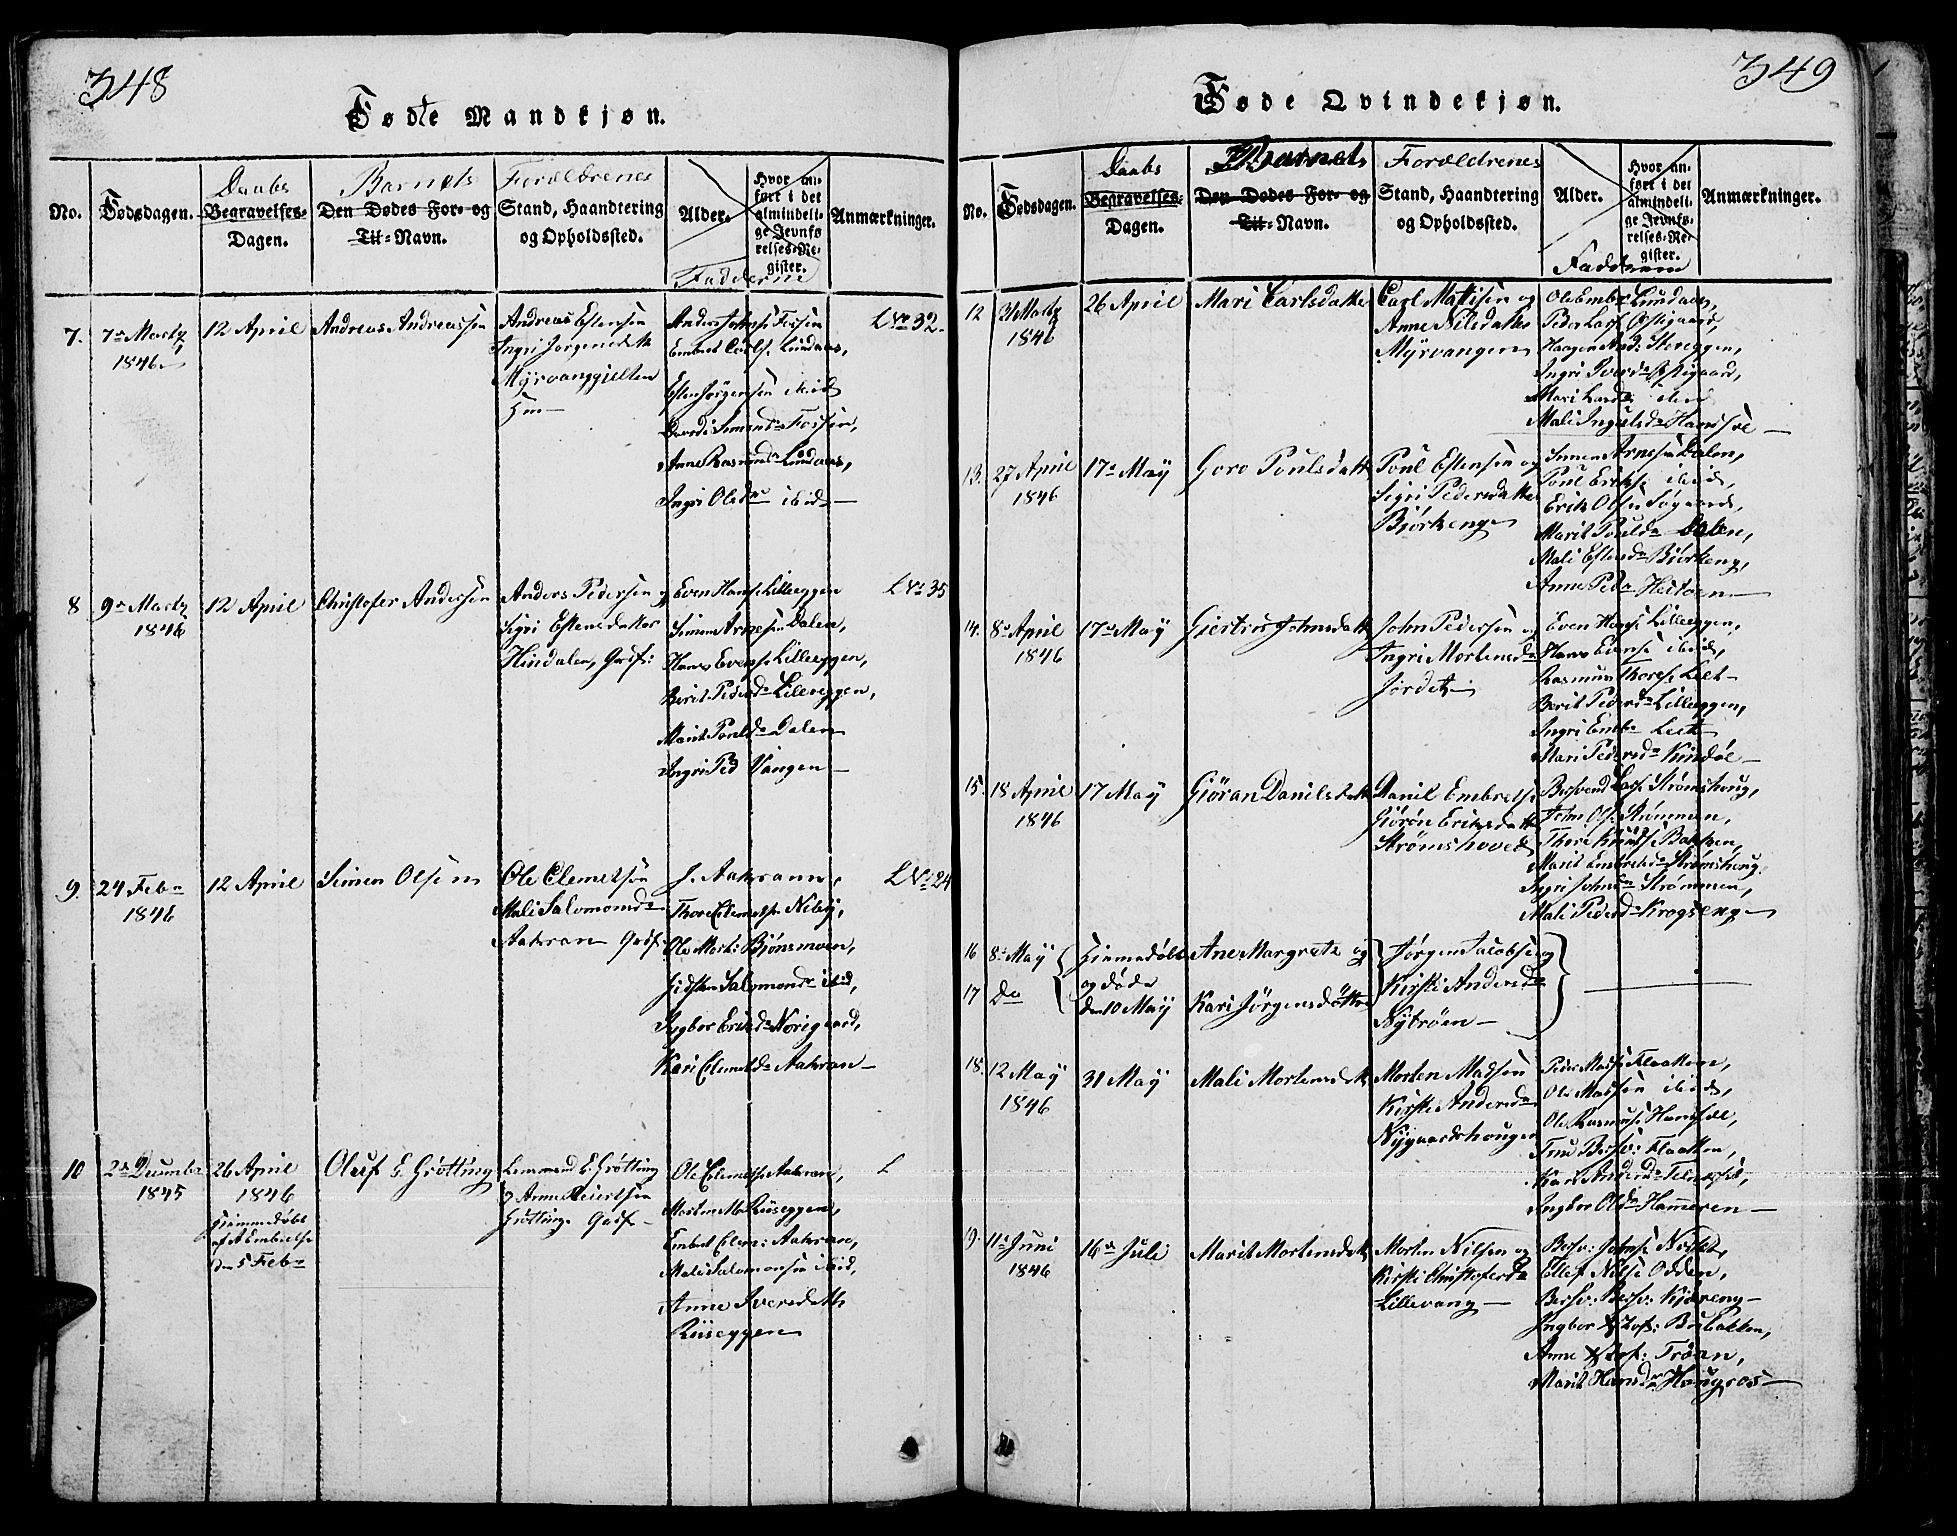 348
Fødte Mandkjøn.
No.
Fødsdagen.
Daabs
Begravelses-
Dagen.
Barnets
Den Dødes For- og
Til-Navn.
Forældrenes
Stand, Haandtering
og Opholdssted.
Alder.
Hvor an-
ført i det
almindeli-
ge Jevnfø
relses-Re-
gister.
Fadderne
Anmærkninger.
7.
7de Martz
1846
12 April
Andreas Andreassen
Andreas Estensen
Ingri Jørgensdtr
Myrvanggjelten
Anders Johns: Fossen
Embret Carls: Lundaas,
Esten Jørgensen ibid
Anne Rasmusda Lundaas,
Ingri Olsda ibid
LNo 32.
8
9de Martz
1846
12 April
Christofer Andersen
Anders Pedersen og
Sigri Estensdatter
Hindalen, Gaif:
Even Hanse Lilleeggen
Simen Arnesen Dalen,
Hans Evense Lilleeggen,
Berit Pedersda Lilleeggen,
Marit Poulda Dalen
Ingri Ped Vangen
LNo 35
9.
24 Feb
1846
12 April
Simen Olsen
Ole Clemetsen
Mali Salomonsda
Aasran
J. Aasrann,
Thore Clemetse Nibÿ,
Ole Mort: Bjønsmoen,
Salomonsda ibid,
Ingbor Eriksda Norigaard,
Kari Clemetda Aasran
LNo 24
10
2de December
1845
26 April
1846
Hiemmedøbt
af A Embretse
den 5 Feb
Oluf E. Grøtting
E. Grøtting
og Anne
Grøtting.
Ole Clemetse Aasran,
Morten Riiseggen,
Embret Clem: Aasran,
Mali Salomonsen ibid,
Anne Iversdatter
Riiseggen
L
349
Fødte Qvindekjøn.
No.
Fødsdagen.
Daabs
Begravelses-
Dagen.
Barnets
Den Dødes For- og
Til-Navn.
Forældrenes
Stand, Haandtering
og Opholdssted.
Alder.
Hvor an-
ført i det
almindeli-
ge Jevnfø-
relses-Re-
gister.
Fadderne
Anmærkninger.
12
31 Martz
1846
26 April
Mari Carlsdatter
Carl Mattisen og
Anne Nilsdatter
Myrvangen
Ole Embr: Lundaas,
Peder Lars: Østigaard,
Haagen And: Storeggen,
Ingri Iversda Østigaard,
Mari Larsda ibid
Mali Ingelsda
13.
27 April
1846
17de Maÿ
Goro Poulsdatter
Poul Estensen og
Sigri Pedersdatter
Bjørkeng
Simen Arnesen Dalen,
Poul Erikse ibid,
Erik Olsen Søgaard,
Marit Poulda Dalen,
Mali Estensda Bjørkeng,
Anne Peda
14.
8de April
1846
17de Maÿ
Giertru Johnsdatter
John Pedersen og
Ingri Mortensda
Jordet
Even Hanse Lilleeggen,
Hans Evense ibid,
Rasmus Thorese
Berit Pedersda Lilleeggen,
Ingri Embr:
Mari Pedersda Kindøl
15.
18 April
1846
17 Maÿ
Giøran Danilsdatter
Danil Embretse
Giøron Eriksdatter
Strømshoved
Besvend Lars: Strømshoug,
John Ols: Strømmen,
Thore Knuds: Bakken,
Marit Embretda Strømshoug,
Ingri Johnsda Strømmen,
Mali Pedersda Krogseng
16
8de Maÿ
Hiemmedøbt
og døde
den 10 Maÿ
Ane Margrete og
Jørgen Jacobse og
Kirsti Andersda
Nÿtrøen
17
Do
Kari Jørgensdøttre
18.
12 Maÿ
1846
31 Maÿ
Mali Mortensdatter
Morten Madsen
Kirsti Andersda
Nÿgaardshougen
Peder Madse Flaatten,
Ole Madsen ibid,
Ole Rasmuse
Besv: Flaatten,
Kari Andersda
Ingbor Olsda Hammeren
19.
11te Juni
1846
16de Juli
Marit Mortensdatter
Morten Nilsen og
Kirsti Christofersda
Lillevang
Besv: Johnse
Ellef Nilse Odden,
Besv: Besv: Kjæreng
Ingbor Bubakken,
Anne Trøan,
Marit Hansda Haugros